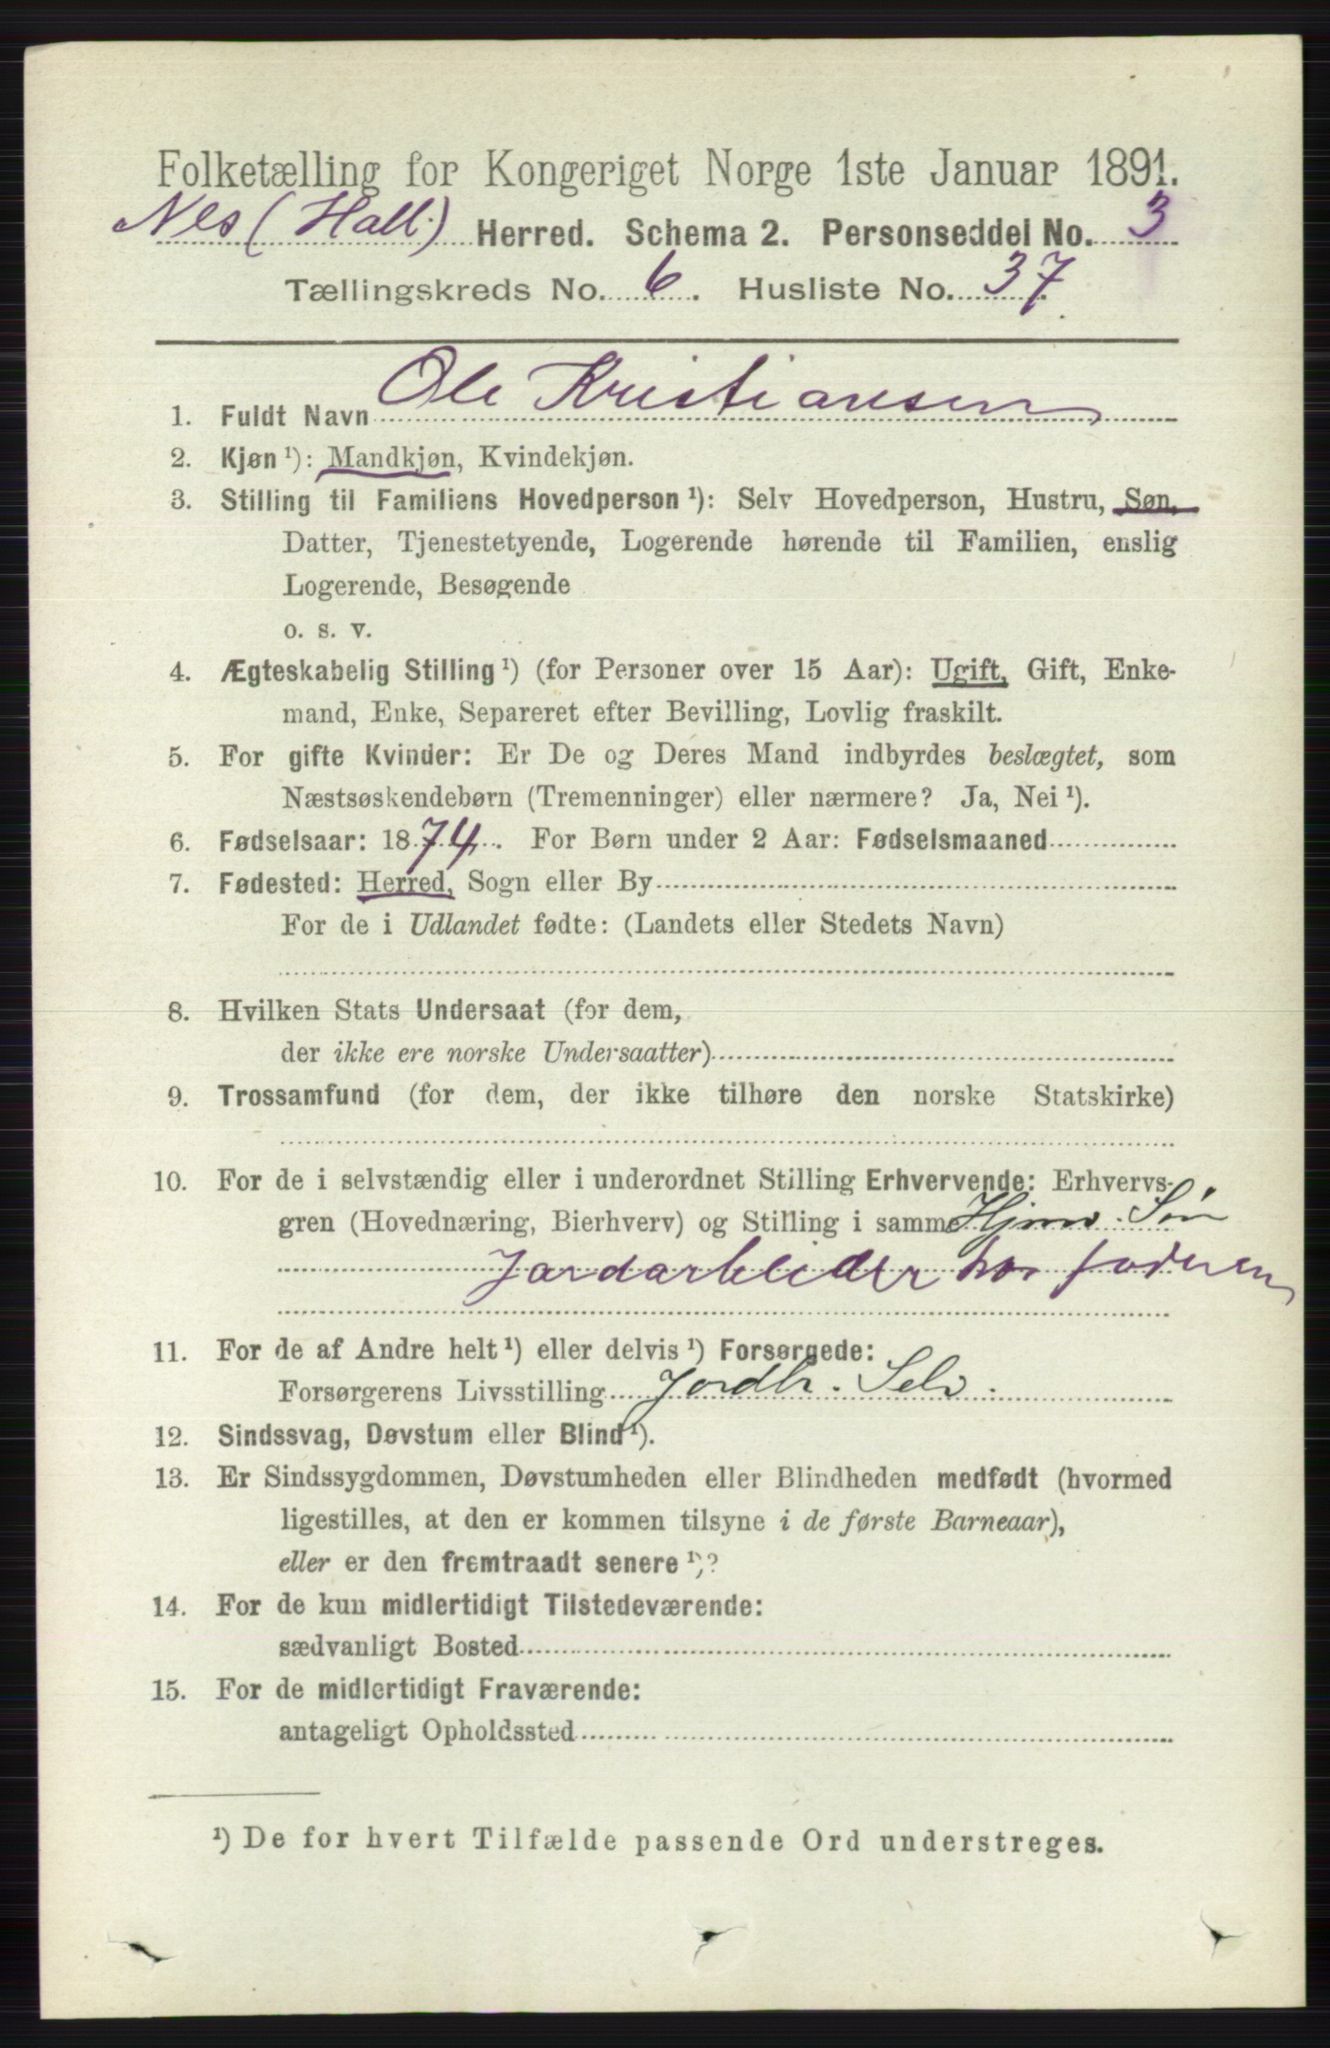 Folketælling for Kongeriget Norge 1ste Januar 1891.
Nes (Hall.) Herred. Schema 2. Personseddel No. 3
Tællingskreds No. 6. Husliste No. 37.
1. Fuldt Navn Ole Kristiansen
2. Kjøn ¹): Mandkjøn, Kvindekjøn.
3. Stilling til Familiens Hovedperson ¹): Selv Hovedperson, Hustru, Søn,
Datter, Tjenestetyende, Logerende hørende til Familien, enslig
Logerende, Besøgende
o. s. v.
4. Ægteskabelig Stilling ¹) (for Personer over 15 Aar): Ugift, Gift, Enke-
mand, Enke, Separeret efter Bevilling, Lovlig fraskilt.
5. For gifte Kvinder: Er De og Deres Mand indbyrdes beslægtet, som
Næstsøskendebørn (Tremenninger) eller nærmere? Ja, Nei ¹).
6. Fødselsaar: 1874. For Børn under 2 Aar: Fødselsmaaned
7. Fødested: Herred, Sogn eller By
For de i Udlandet fødte: (Landets eller Stedets Navn)
8. Hvilken Stats Undersaat (for dem,
der ikke ere norske Undersaatter)
9. Trossamfund (for dem, der ikke tilhøre den norske Statskirke)
10. For de i selvstændig eller i underordnet Stilling Erhvervende: Erhvervs-
gren (Hovednæring, Bierhverv) og Stilling i samme Hjmv. Søn
Jordarbeider hos faderen
11. For de af Andre helt ¹) eller delvis ¹) Forsørgede:
Forsørgerens Livsstilling Jordbr. Selv.
12. Sindssvag, Døvstum eller Blind ¹).
13. Er Sindssygdommen, Døvstumheden eller Blindheden medfødt (hvormed
ligestilles, at den er kommen tilsyne i de første Barneaar),
eller er den fremtraadt senere ¹)?
14. For de kun midlertidigt Tilstedeværende:
sædvanligt Bosted
15. For de midlertidigt Fraværende:
antageligt Opholdssted
¹) De for hvert Tilfælde passende Ord understreges.